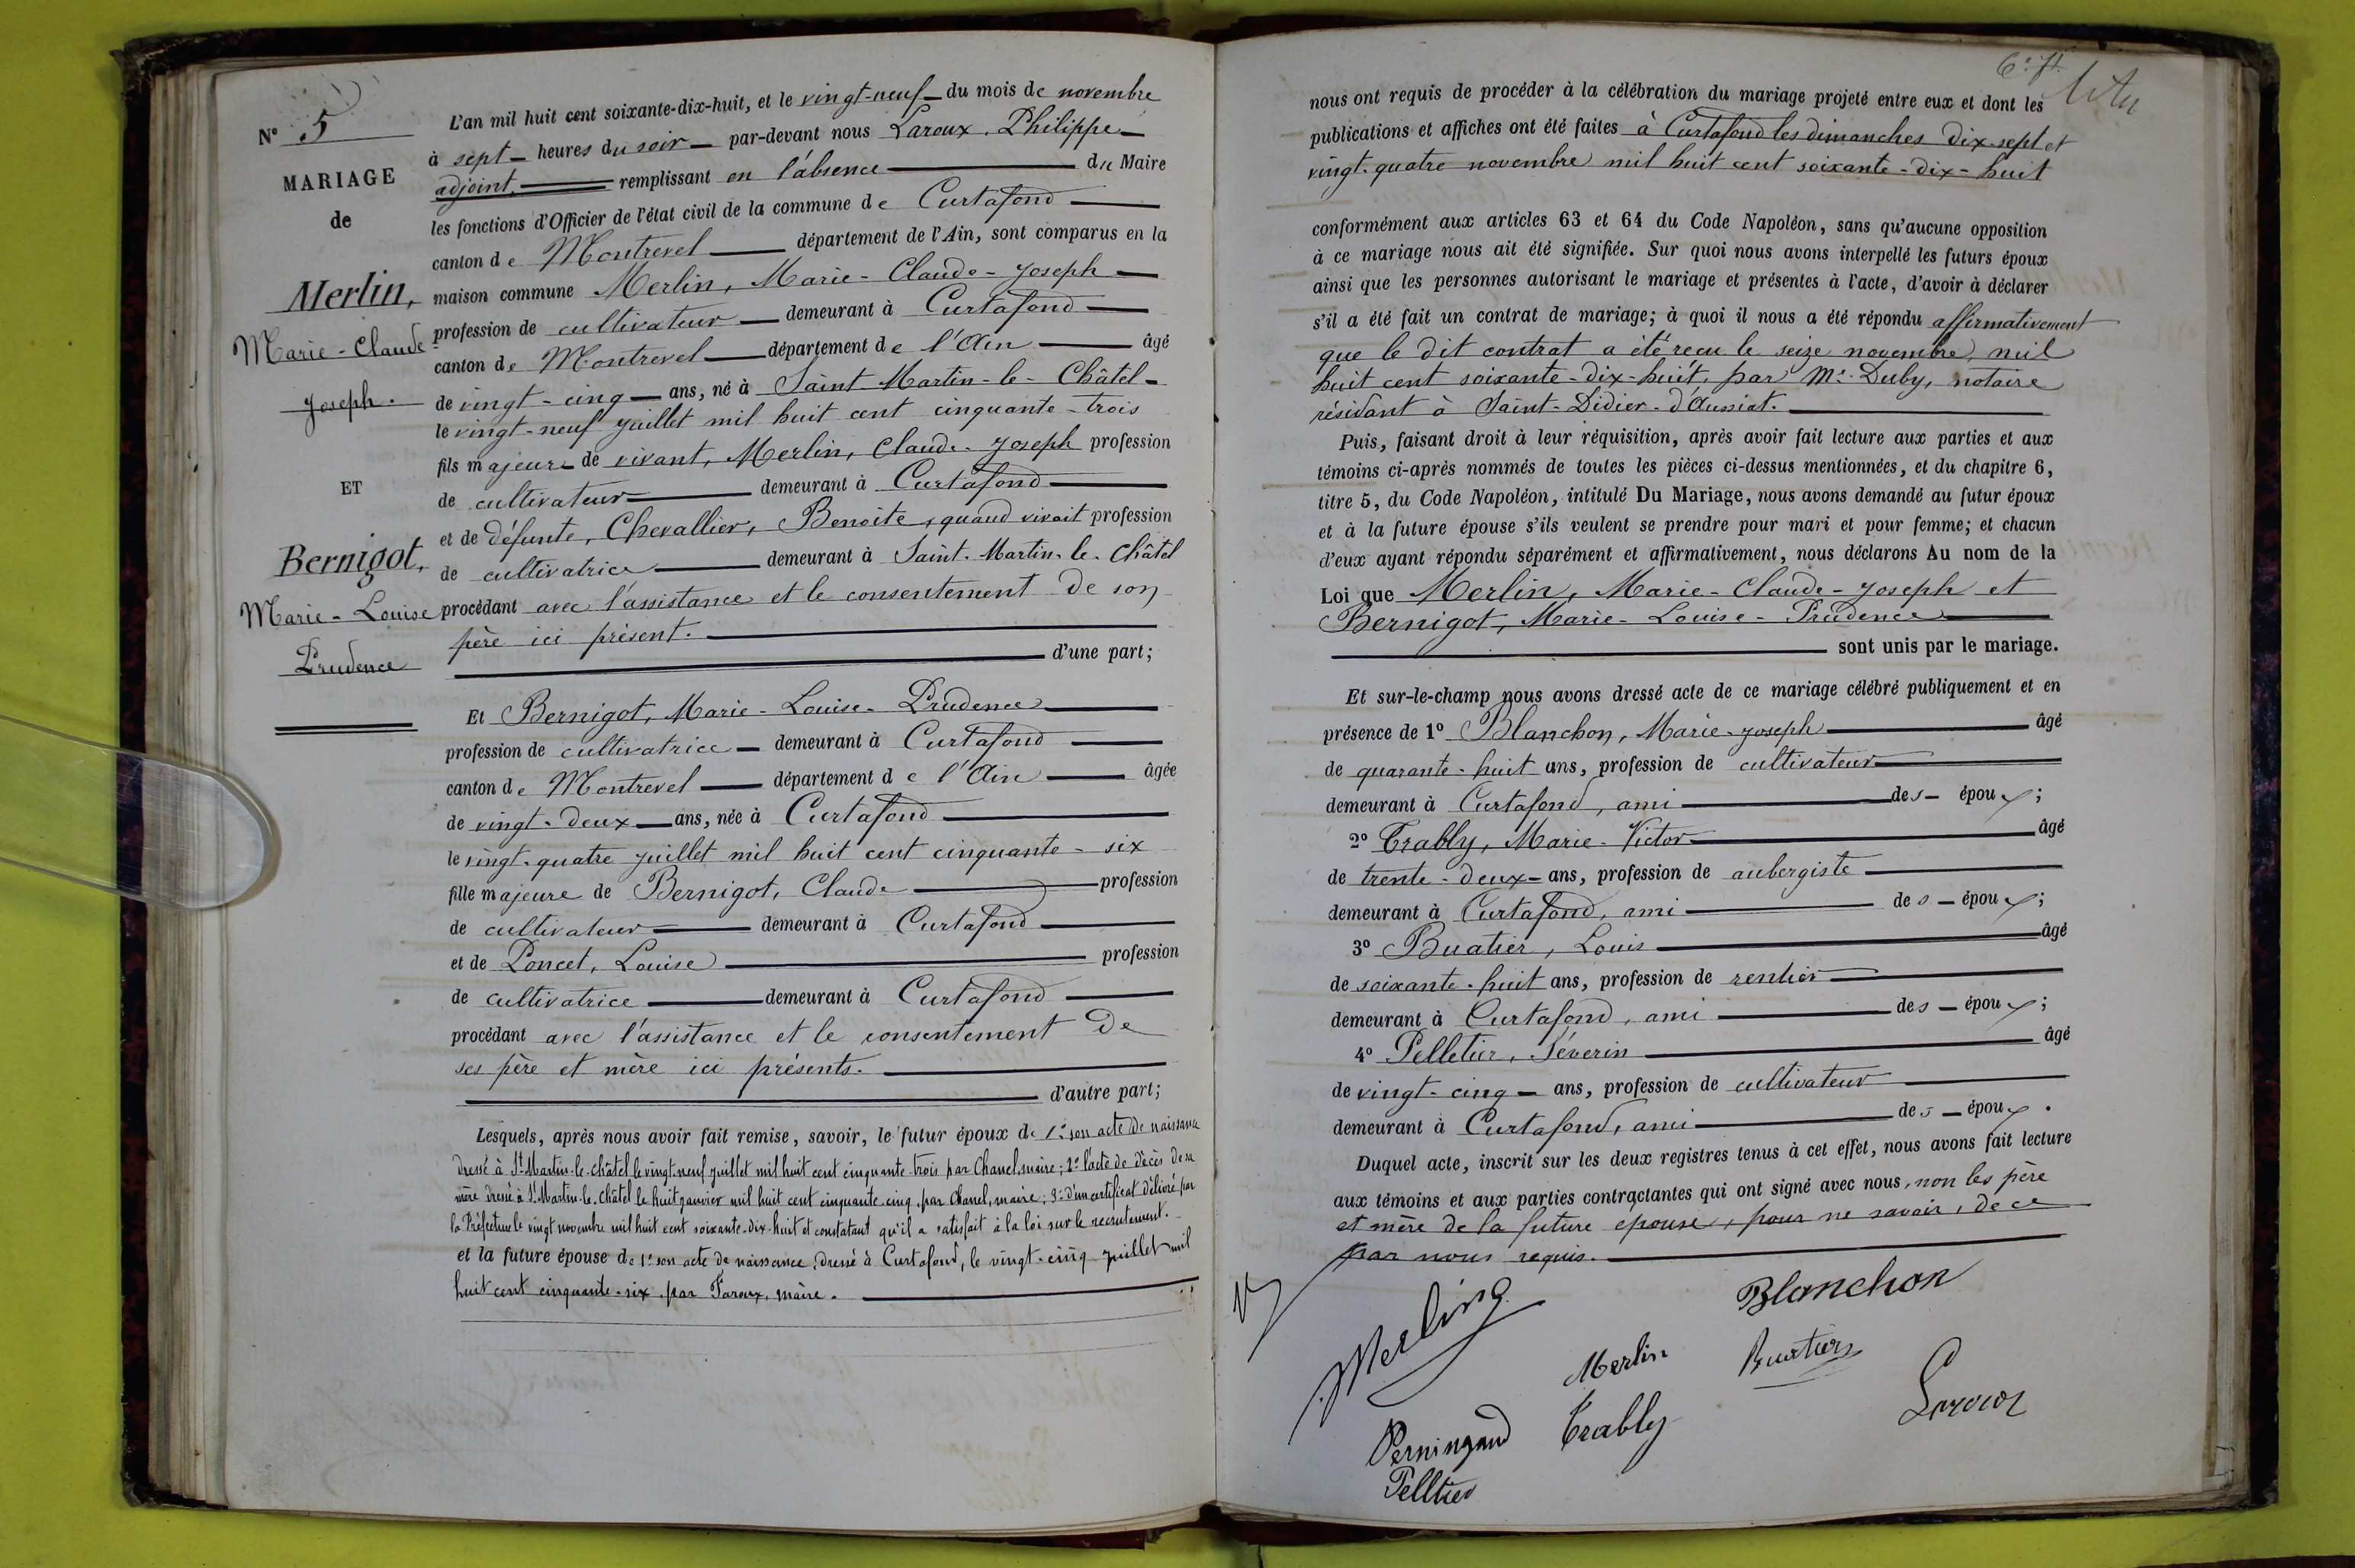 N° 5
MARIAGE
de
Merlin,
Marie-Claude-
Joseph.
ET
Bernigot,
Marie-Louise
Prudence
L'an mil huit cent soixante-dix-huit, et le vingt-neuf du mois de novembre
à sept heures du soir par-devant nous Laroux, Philippe
adjoint, remplissant en l'absence du Maire
les fonctions d'Officier de l'état civil de la commune de Curtafond
canton de Montrevel département de l'Ain, sont comparus en la
maison commune Merlin, Marie-Claude-Joseph
profession de cultivateur demeurant à Curtafond
canton de Montrevel département de l'Ain âgé
de vingt-cinq ans, né à Saint Martin-le-Châtel
le vingt-neuf juillet mil huit cent cinquante-trois
fils majeur de vivant, Merlin, Claude-Joseph profession
de cultivateur demeurant à Curtafond
et de défunte, Chevallier, Benoite, quand vivait profession
de cultivatrice demeurant à Saint-Martin-le-Châtel
procédant avec l'assistance et le consentement de son
père ici présent.
d'une part;
Et Bernigot, Marie-Louise-Prudence
profession de cultivatrice demeurant à Curtafond
canton de Montrevel département de l'Ain âgée
de vingt-deux ans, née à Curtafond
le vingt-quatre juillet mil huit cent cinquante-six
fille majeure de Bernigot, Claude profession
de cultivateur demeurant à Curtafond
et de Poncet, Louise profession
de cultivatrice demeurant à Curtafond
procédant avec l'assistance et le consentement de
ses père et mère ici présents.
d'autre part;
Lesquels, après nous avoir fait remise, savoir, le futur époux de 1° son acte de naissance
dressé à St Martin-le-Châtel le vingt-neuf juillet mil huit cent cinquante-trois par Chanel, maire; 2° l'acte de décès de sa
mère dressé à St Martin-le-Châtel le huit janvier mil huit cent cinquante-cinq, par Chanel, maire; 3° d'un certificat délivré par
la Préfecture le vingt novembre mil huit cent soixante-dix-huit et constatant qu'il a satisfait à la loi sur le recrutement.
et la future épouse de 1° son acte de naissance, dressé à Curtafond, le vingt-cinq juillet mil
huit cent cinquante-six, par Faroux, maire.
nous ont requis de procéder à la célébration du mariage projeté entre eux et dont les
publications et affiches ont été faites à Curtafond les dimanches dix-sept et
vingt-quatre novembre mil huit cent soixante-dix-huit
conformément aux articles 63 et 64 du Code Napoléon, sans qu'aucune opposition
à ce mariage nous ait été signifiée. Sur quoi nous avons interpellé les futurs époux
ainsi que les personnes autorisant le mariage et présentes à l'acte, d'avoir à déclarer
s'il a été fait un contrat de mariage; à quoi il nous a été répondu affirmativement
que le dit contrat a été reçu le seize novembre mil
huit cent soixante-dix-huit, par Me Duby, notaire
résidant à Saint-Didier-d'Aussiat.
Puis, faisant droit à leur réquisition, après avoir fait lecture aux parties et aux
témoins ci-après nommés de toutes les pièces ci-dessus mentionnées, et du chapitre 6,
titre 5, du Code Napoléon, intitulé Du Mariage, nous avons demandé au futur époux
et à la future épouse s'ils veulent se prendre pour mari et pour femme; et chacun
d'eux ayant répondu séparément et affirmativement, nous déclarons Au nom de la
Loi que Merlin, Marie-Claude-Joseph et
Bernigot, Marie-Louise-Prudence
sont unis par le mariage.
Et sur-le-champ nous avons dressé acte de ce mariage célébré publiquement et en
présence de 1° Blanchon, Marie-Joseph âgé
de quarante-huit ans, profession de cultivateur
demeurant à Curtafond, ami des époux;
2° Trably, Marie-Victor âgé
de trente-deux ans, profession de aubergiste
demeurant à Curtafond, ami des époux;
3° Buatier, Louis âgé
de soixante-huit ans, profession de rentier
demeurant à Curtafond, ami des époux;
4° Pelletier, Séverin âgé
de vingt-cinq ans, profession de cultivateur
demeurant à Curtafond, ami des époux.
Duquel acte, inscrit sur les deux registres tenus à cet effet, nous avons fait lecture
aux témoins et aux parties contractantes qui ont signé avec nous, non les père
et mère de la future épouse, pour ne savoir, de ce
par nous requis.
Merlin
Blanchon
Merlin
Buatier
Perningaud
Trably
Laroux
Pelltier